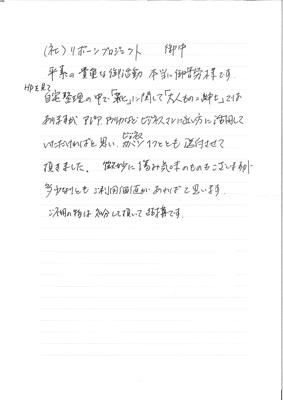 (社)リボーンプロジェクト 御中
平素の貴重な御活動 本当に御苦労様です.
HPを見て
自宅整理の中で「靴」に関して「大人もの 紳士」では
ありますが アジア、アフリカなど ビジネスマンに近い方に活用して
いただければと思い. ビジネス ワイシャツ とともに 送付させて
頂きました。 微妙に 痛み気味のものもございますが
多少なりとも ご利用価値があればと思います.
ご不用の物は 処分して頂いて 結構です.